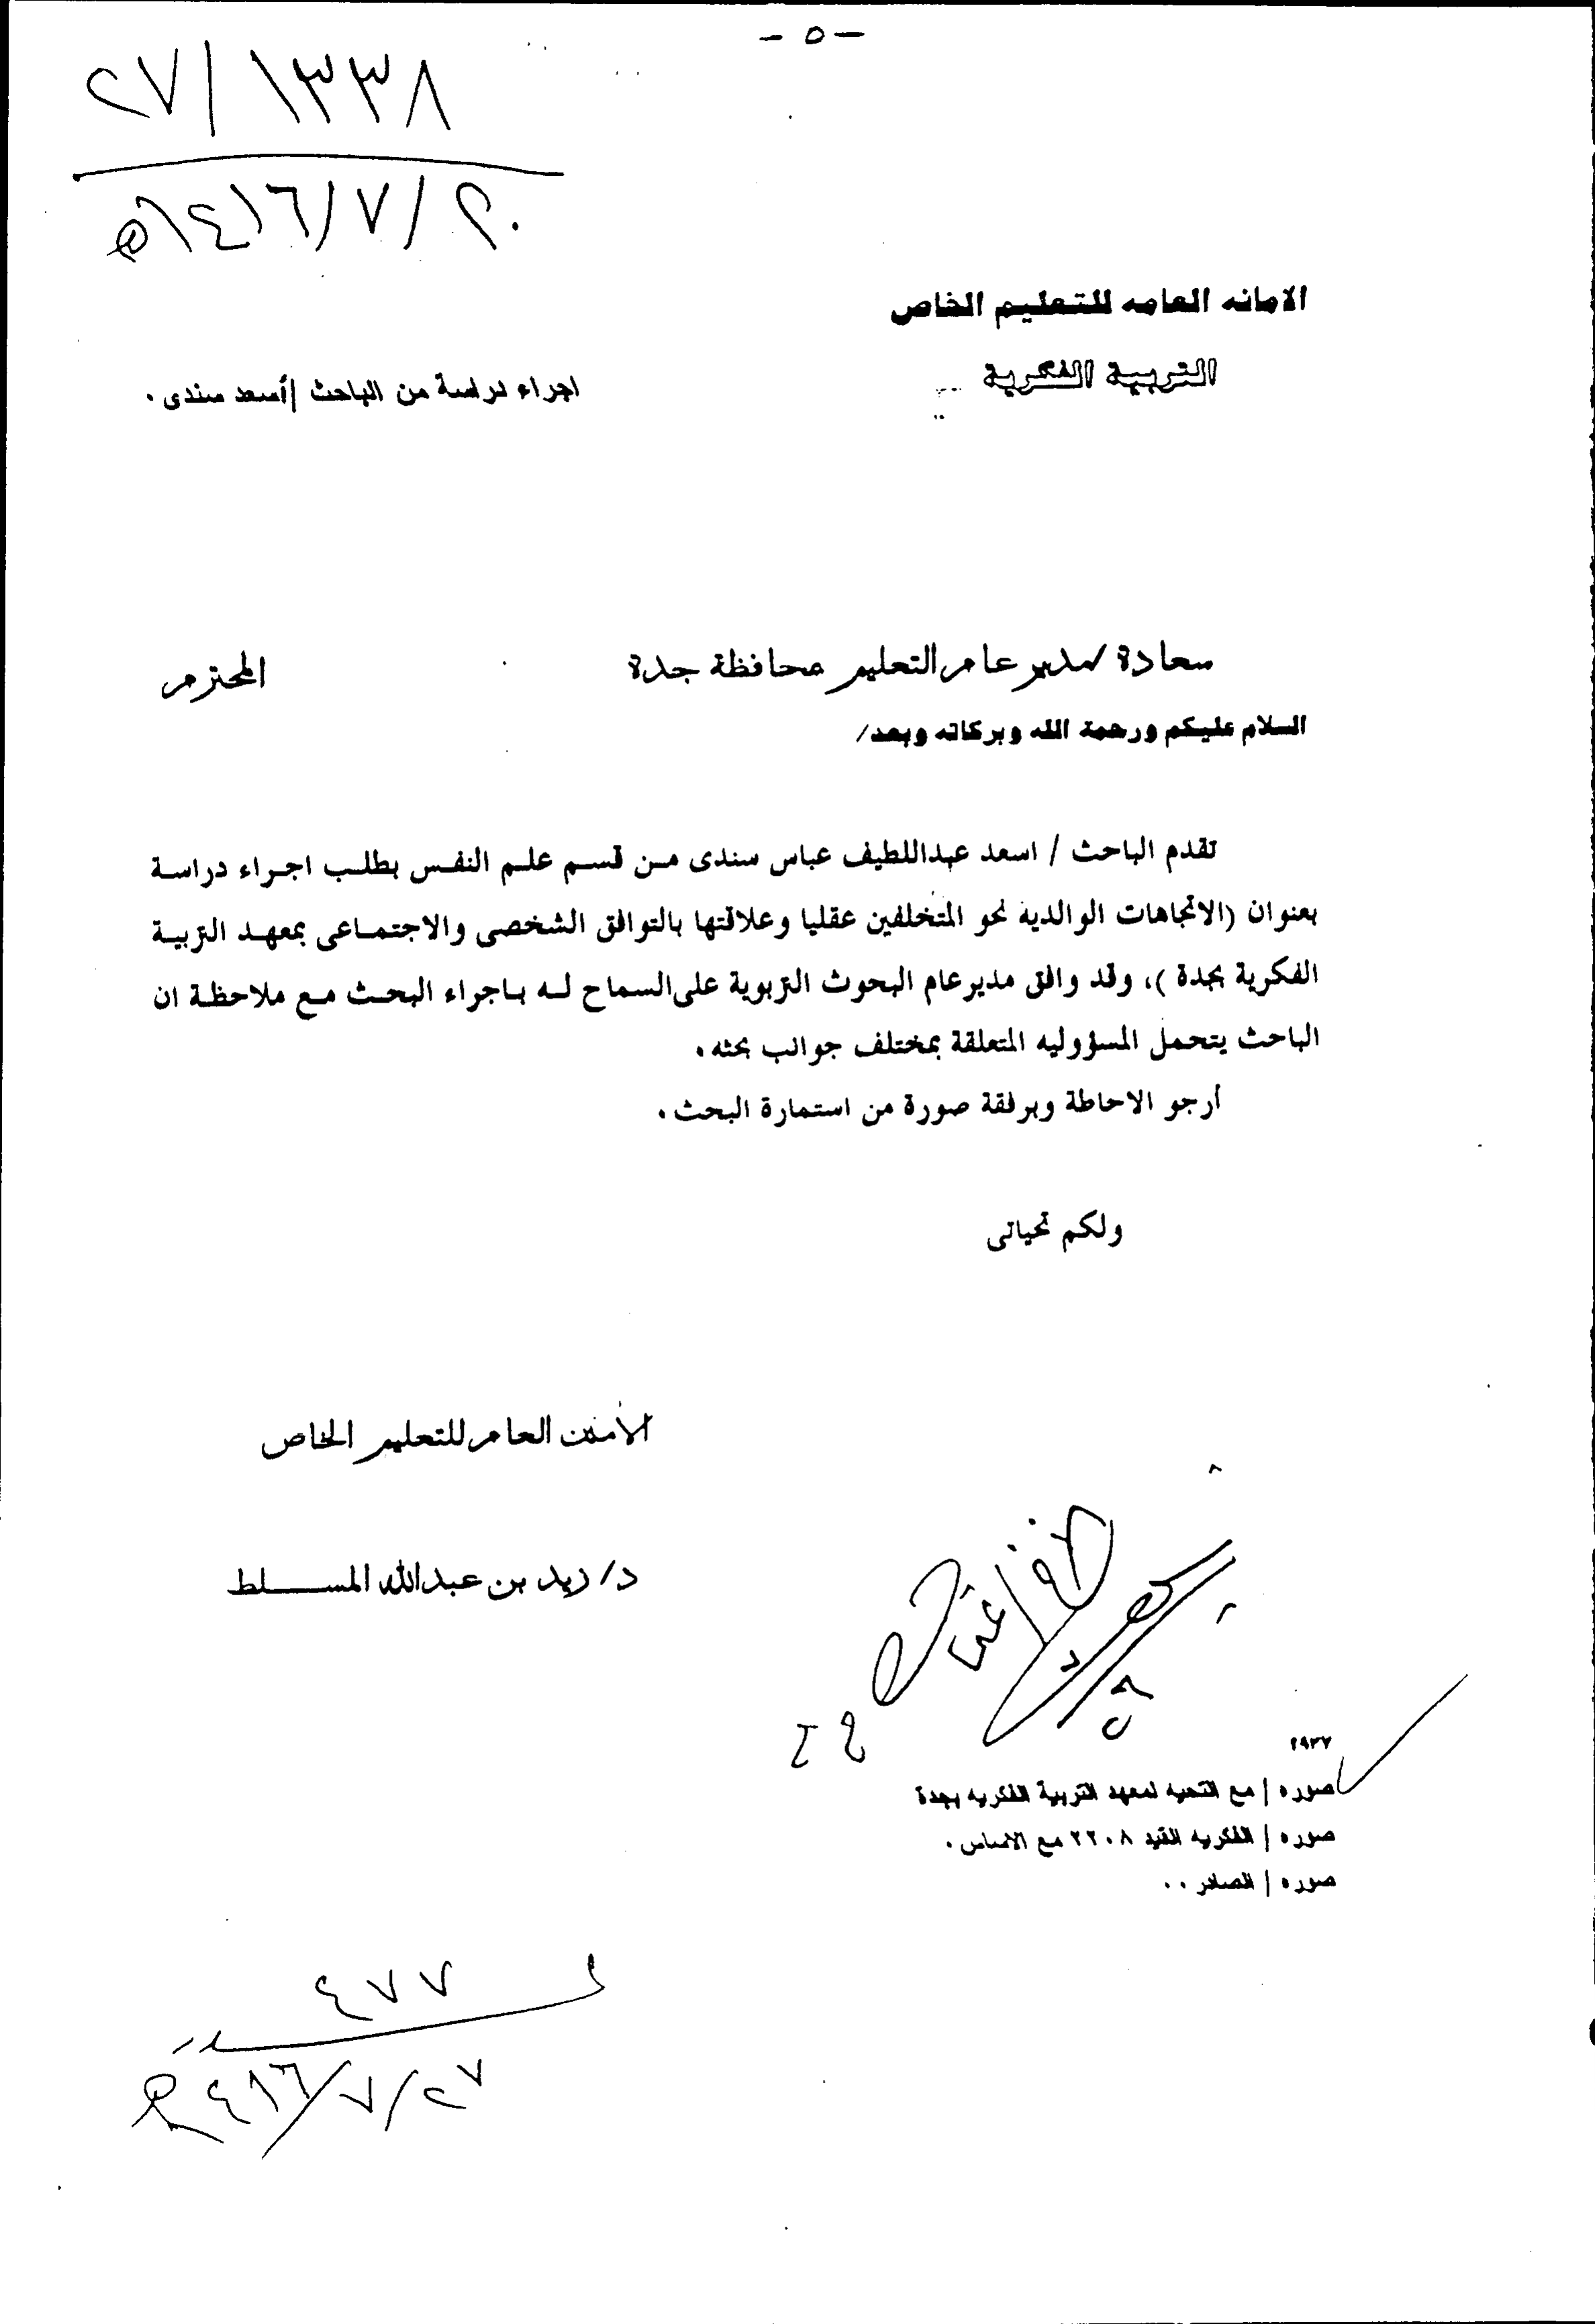 - ٥ -
٢٧/١٣٣٨
٢٠/٧/١٤١٦هـ
الامانه العامه للتعليم الخاص
التربية الفكرية
اجراء دراسة من الباحث /أسعد سندى .
سعادة /مدير عام التعليم محافظة جدة المحترم
السلام عليكم ورحمة الله وبركاته وبعد/
تقدم الباحث / اسعد عبداللطيف عباس سندى من قسم علم النفس بطلب اجراء دراسة
بعنوان (الاتجاهات الوالدية نحو المتخلفين عقليا وعلاقتها بالتوافق الشخصى والاجتماعى بمعهد التربية
الفكرية بجدة )، وقد وافق مدير عام البحوث التربوية على السماح له باجراء البحث مع ملاحظة ان
الباحث يتحمل المسؤوليه المتعلقة بمختلف جوانب بحثه .
أرجو الاحاطة وبرفقة صورة من استمارة البحث .
ولكم تحياتى
الأمين العام للتعليم الخاص
د/ زيد بن عبدالله المسلط
٢٩٣٧
صوره / مع التحيه لمعهد التربية الفكريه بجدة
صوره / الفكريه القيد ٢٢٠٨ مع الاساس .
صوره / الصادر ..
٤٧٧
٢٧/٧/٤١٦هـ